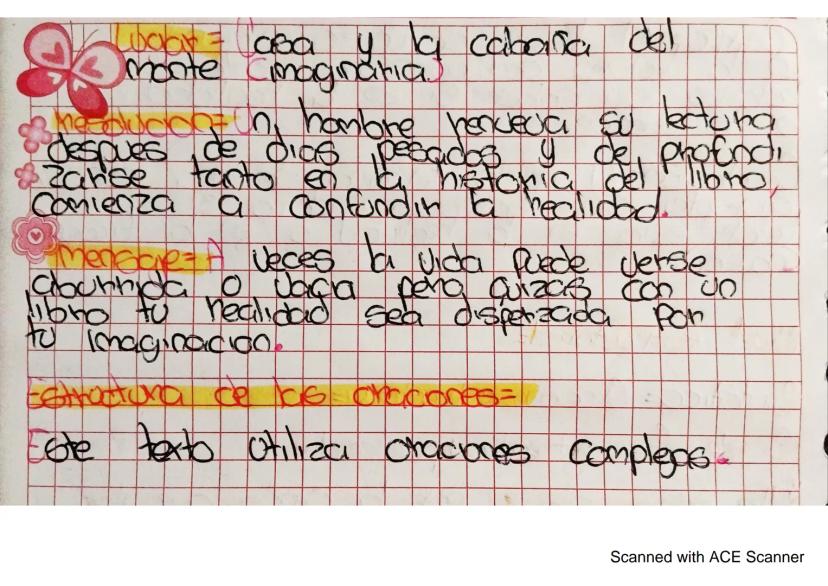 Lugar= Casa y la cabaña del
monte (imaginaria)
Resolucion= Un hombre renueva su lectura
despues de dias pesados y de profundi
zarse tanto en la historia del libro,
comienza a confundir la realidad.
mensaje= A veces la vida puede verse
aburrida o vacia pero quizas con un
libro tu realidad sea disperzada por
tu imaginacion.
Estructura de las oraciones=
Este texto utiliza oraciones complegas.
Scanned with ACE Scanner